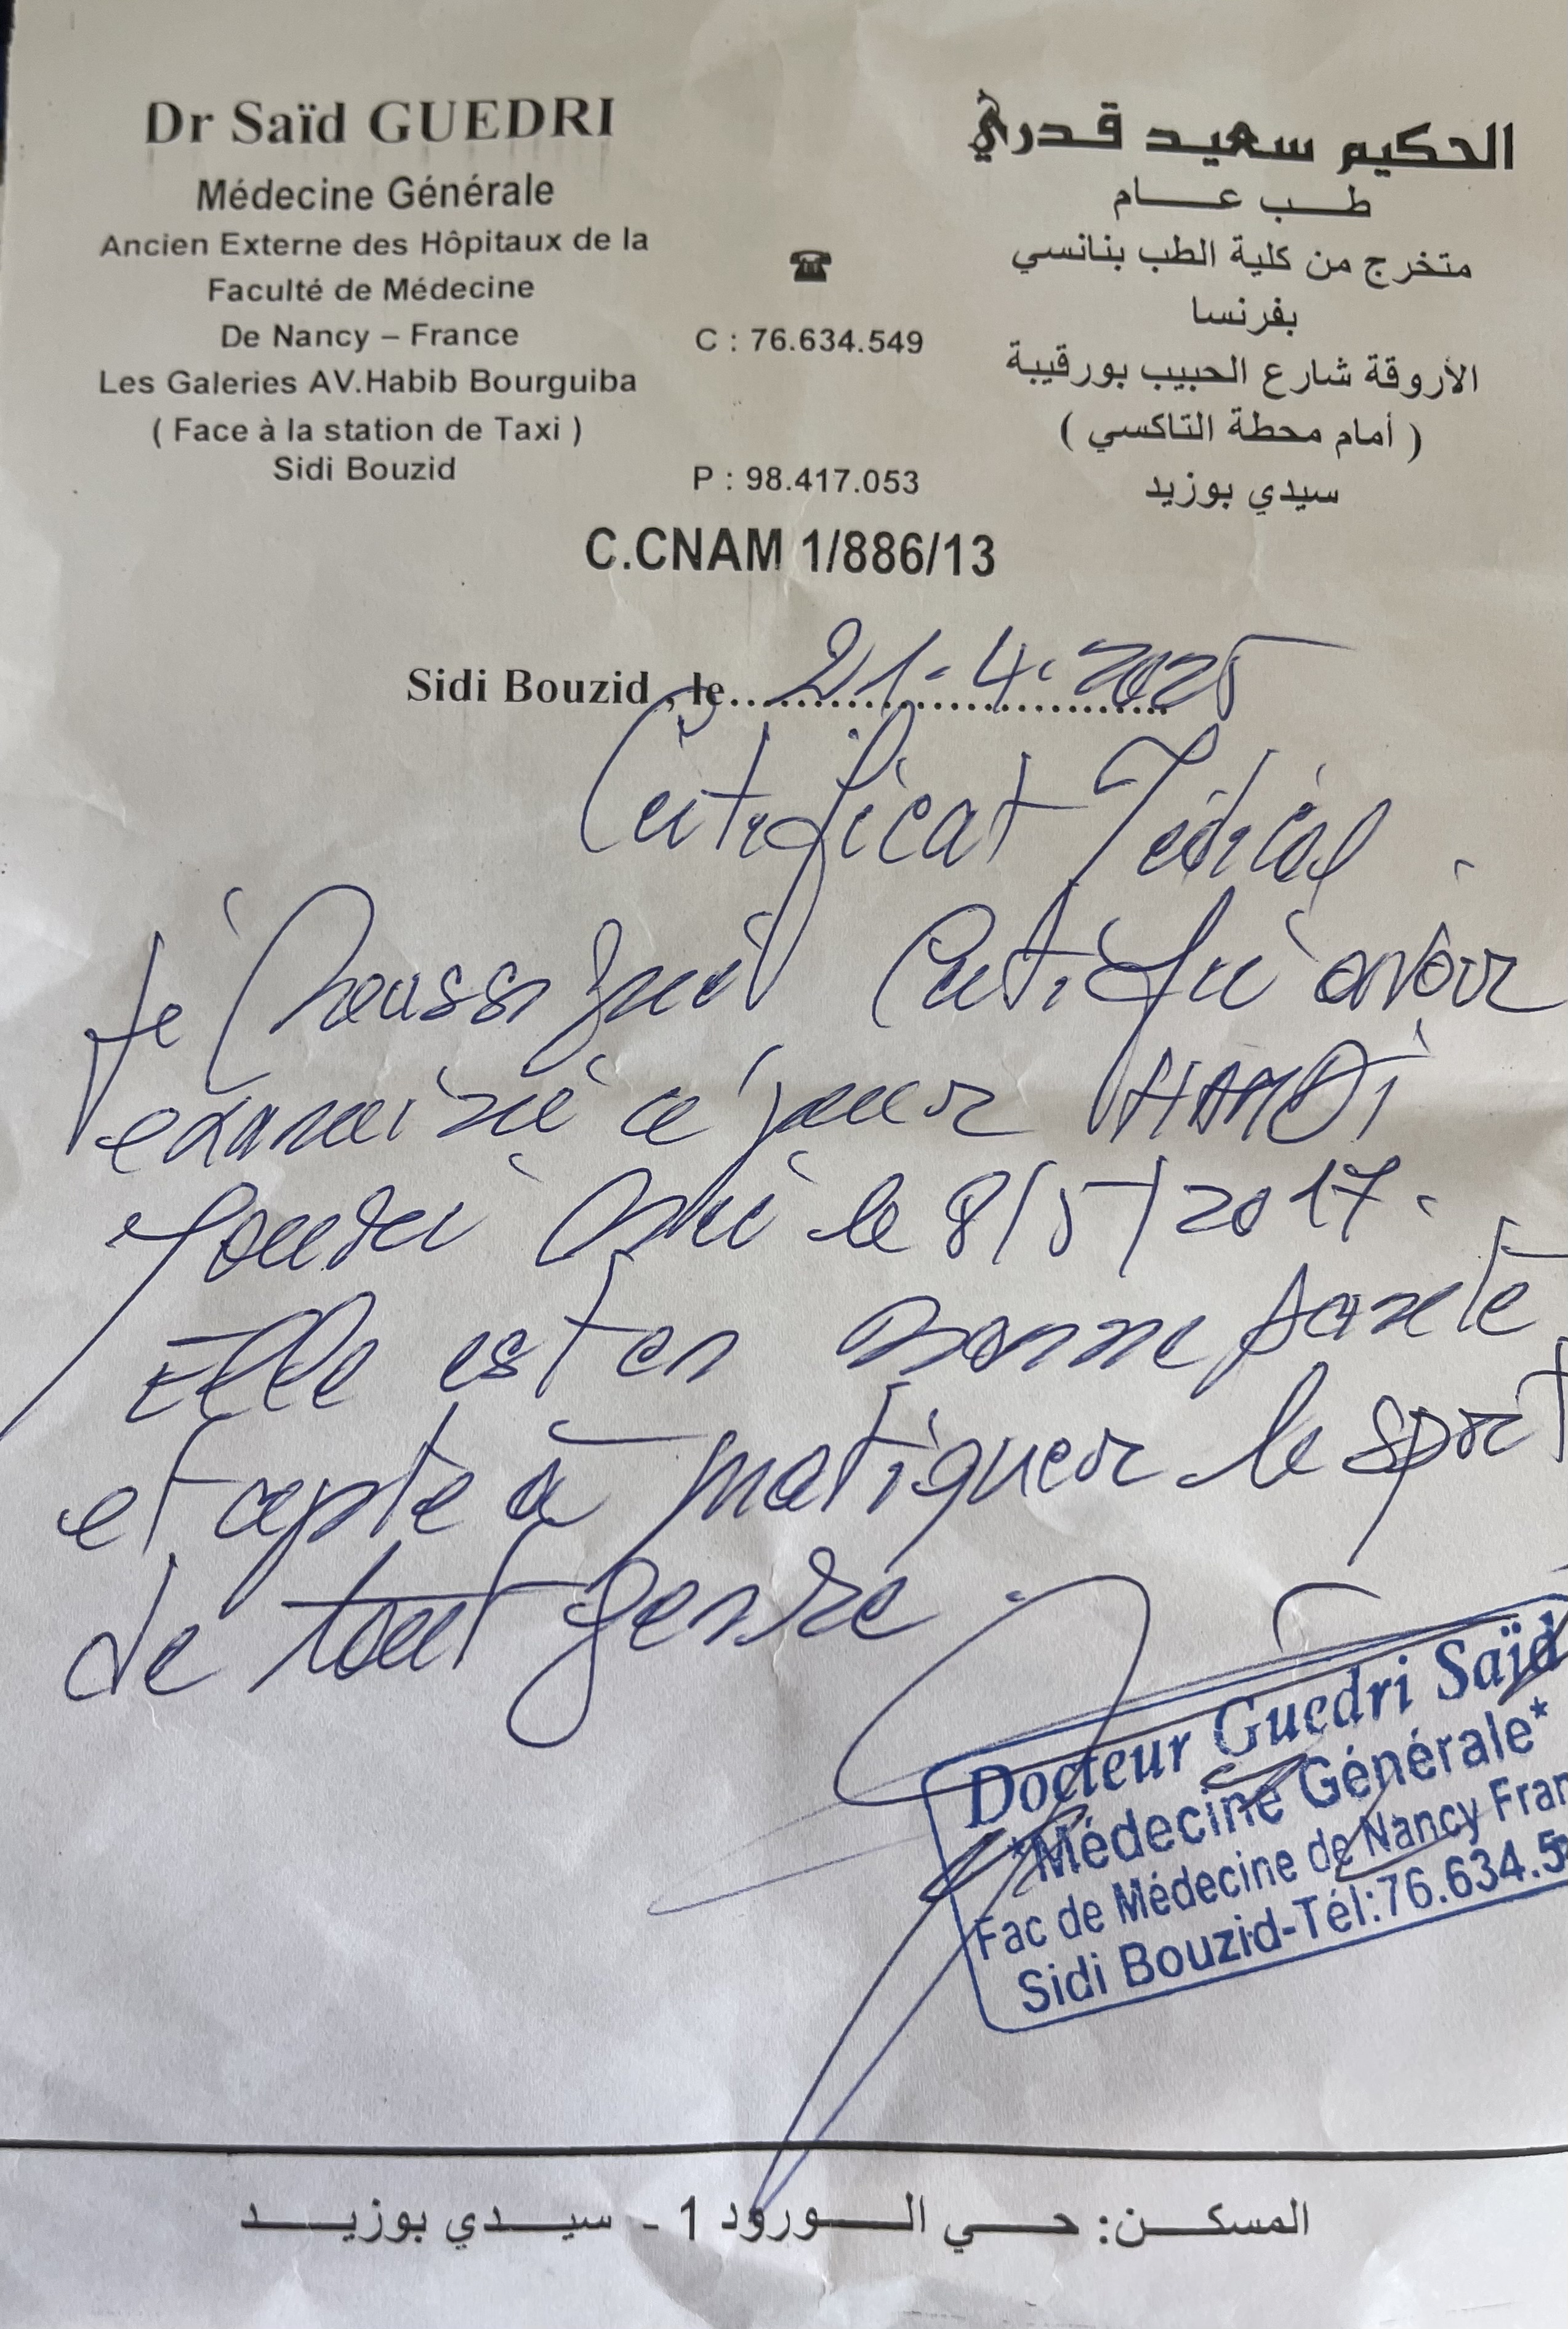 Dr Saïd GUEDRI
Médecine Générale
Ancien Externe des Hôpitaux de la
Faculté de Médecine
De Nancy – France
Les Galeries AV.Habib Bourguiba
( Face à la station de Taxi )
Sidi Bouzid
C : 76.634.549
P : 98.417.053
الحكيم سعيد قدري
طب عام
متخرج من كلية الطب بنانسي
بفرنسا
الأروقة شارع الحبيب بورقيبة
( أمام محطة التاكسي )
سيدي بوزيد
C.CNAM 1/886/13
Sidi Bouzid , le 21-4-2025
Certificat Médical
Je Soussigné Certifie avoir
examiné ce jour HAMDI
née le 8/5/2017.
Elle est en bonne santé
et apte à pratiquer le sport
de tout genre.
Docteur Guedri Saïd
*Médecine Générale*
Fac de Médecine de Nancy Fran
Sidi Bouzid-Tél:76.634.5
المسكن: حي الورود 1 - سيدي بوزيد